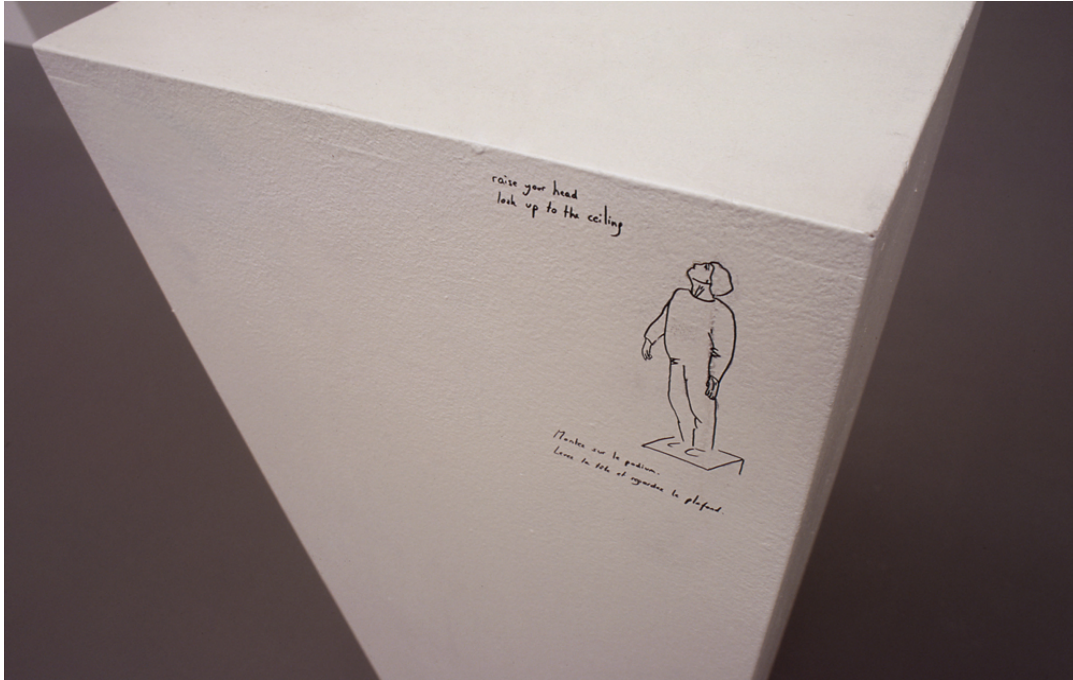 raise your head
look up to the ceiling
Montez sur le podium.
Levez la tête et regardez le plafond.